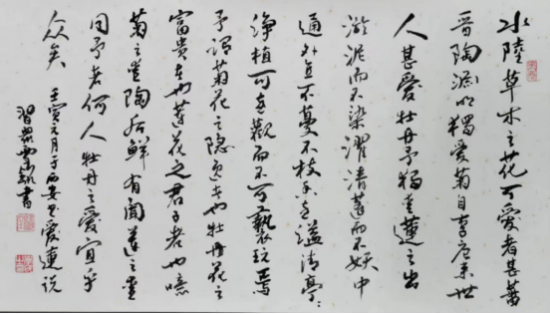 水陸草木之花可愛者甚蕃
晋陶渊明獨爱菊自李唐来世
人甚愛牡丹予獨爱蓮之出
淤泥而不染濯清蓮而不妖中
通外直不蔓不枝香遠溢清亭亭
淨植可遠觀而不可褻玩焉
予謂菊花之隐逸者也牡丹花之
富貴者也蓮花之君子者也噫
菊之爱陶后鲜有闻蓮之爱
同予者何人牡丹之爱宜乎
众矣 壬寅元月于西安书愛蓮说
書